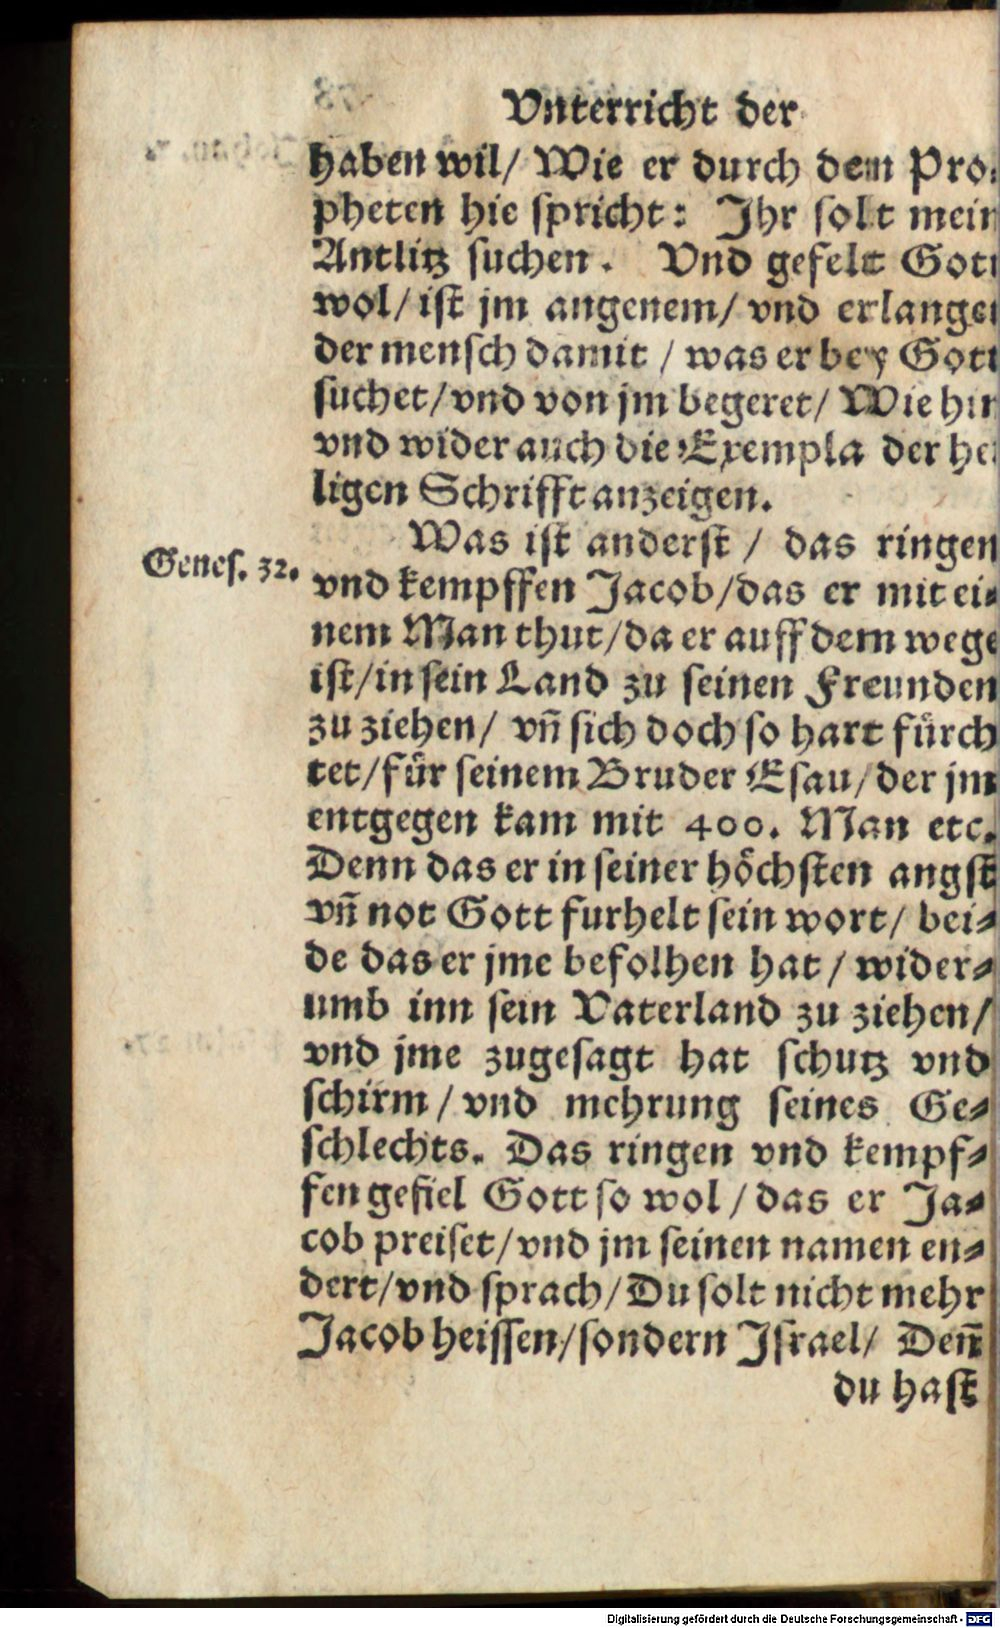 Vnterricht der
haben wil/ Wie er durch den Pro-
pheten hie spricht: Jhr solt mein
Antlitz suchen. Vnd gefelt Gott
wol/ ist jm angenem/ vnd erlanget
der mensch damit / was er bey Gott
suchet/ vnd von jm begeret/ Wie hin
vnd wider auch die Exempla der hei
ligen Schrifft anzeigen.
Was ist anderst / das ringen
Genes. 32.
vnd kempffen Jacob/ das er mit ei-
nem Man thut/ da er auff dem wege
ist/ in sein Land zu seinen Freunden
zu ziehen/ vñ sich doch so hart fürch
tet/ für seinem Bruder Esau/ der jm
entgegen kam mit 400. Man etc.
Denn das er in seiner höchsten angst
vñ not Gott furhelt sein wort/ bei-
de das er jme befolhen hat / wider-
umb inn sein Vaterland zu ziehen/
vnd jme zugesagt hat schutz vnd
schirm / vnd mehrung seines Ge-
schlechts. Das ringen vnd kempf-
fen gefiel Gott so wol / das er Ja-
cob preiset/ vnd jm seinen namen en-
dert/ vnd sprach/ Du solt nicht mehr
Jacob heissen/ sondern Jsrael/ Deñ
du hast
Digitalisierung gefördert durch die Deutsche Forschungsgemeinschaft - DFG